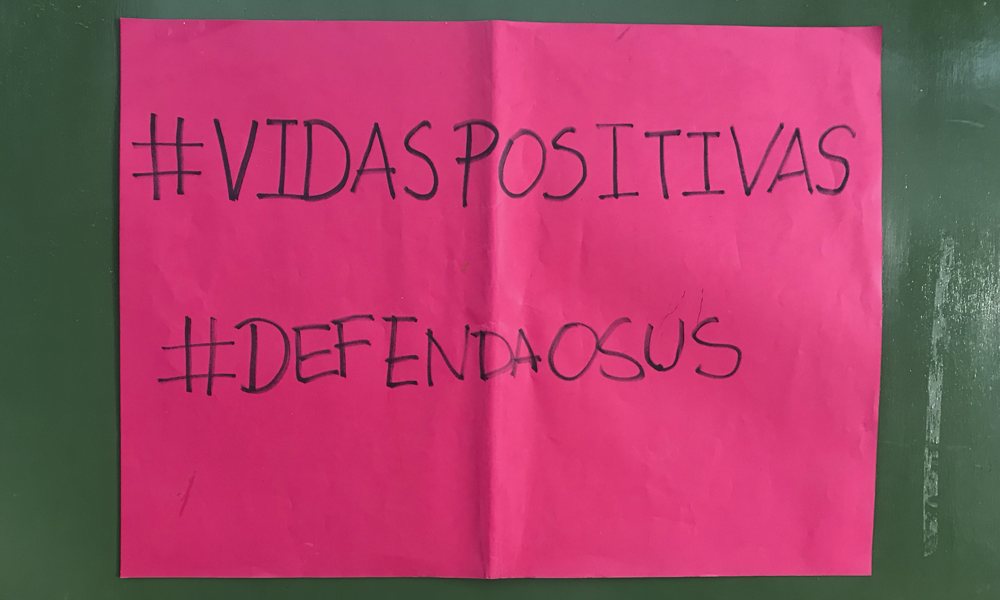 #VIDASPOSITIVAS
#DEFENDAOSUS